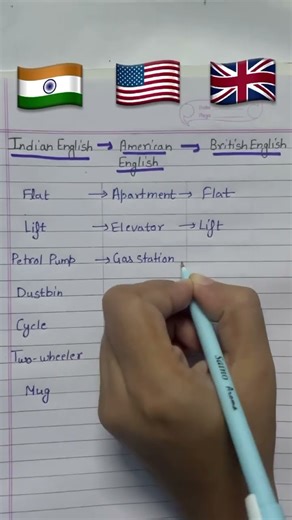 Indian English → American English → British English
Flat → Apartment → Flat
Lift → Elevator → Lift
Petrol Pump → Gas station
Dustbin
Cycle
Two-wheeler
Mug